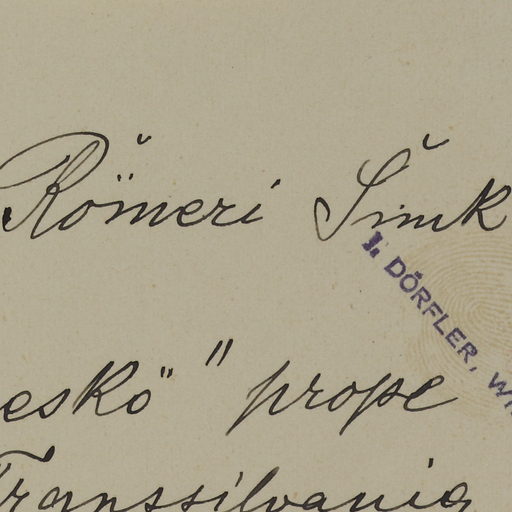 Römeri Šimk
I. DÖRFLER, WI
eskö" prope
Transsilvania